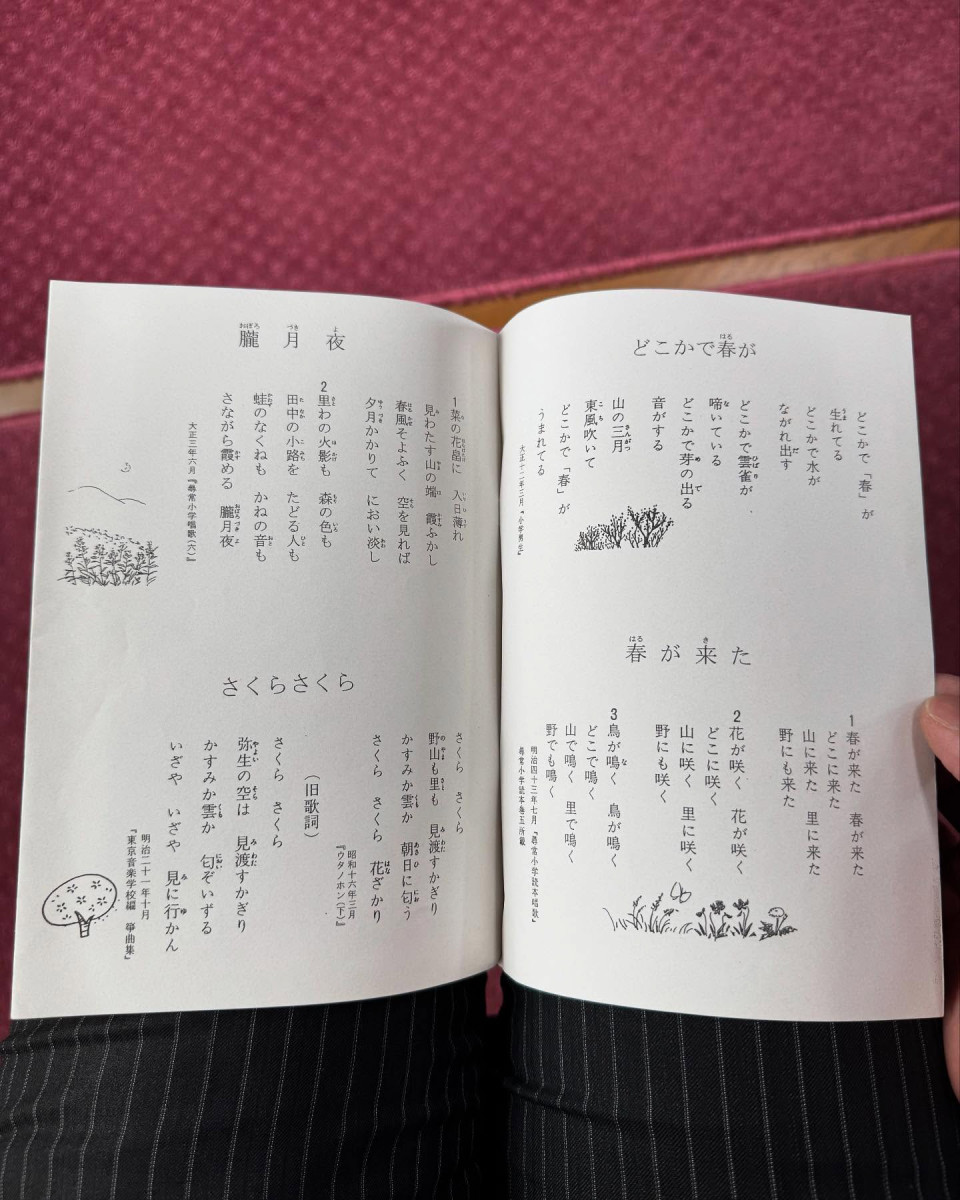 どこかで春が
どこかで「春」が
生れてる
どこかで水が
ながれ出す
どこかで雲雀が
啼いている
どこかで芽の出る
音がする
山の三月
東風吹いて
どこかで「春」が
うまれてる
大正十二年三月『小学男生』
春が来た
1 春が来た 春が来た
どこに来た
山に来た 里に来た
野にも来た
2 花が咲く 花が咲く
どこに咲く
山に咲く 里に咲く
野にも咲く
3 鳥が鳴く 鳥が鳴く
どこで鳴く
山で鳴く 里で鳴く
野でも鳴く
明治四十三年七月『尋常小学読本唱歌』
尋常小学読本巻五所載
朧月夜
1 菜の花畠に 入日薄れ
見わたす山の端 霞ふかし
春風そよふく 空を見れば
夕月かかりて におい淡し
2 里わの火影も 森の色も
田中の小路を たどる人も
蛙のなくねも かねの音も
さながら霞める 朧月夜
大正三年六月『尋常小学唱歌(六)』
さくらさくら
さくら さくら
野山も里も 見渡すかぎり
かすみか雲か 朝日に匂う
さくら さくら 花ざかり
昭和十六年三月
『ウタノホン(下)』
(旧歌詞)
さくら さくら
弥生の空は 見渡すかぎり
かすみか雲か 匂ぞいずる
いざや いざや 見に行かん
明治二十一年十月
『東京音楽学校編 箏曲集』